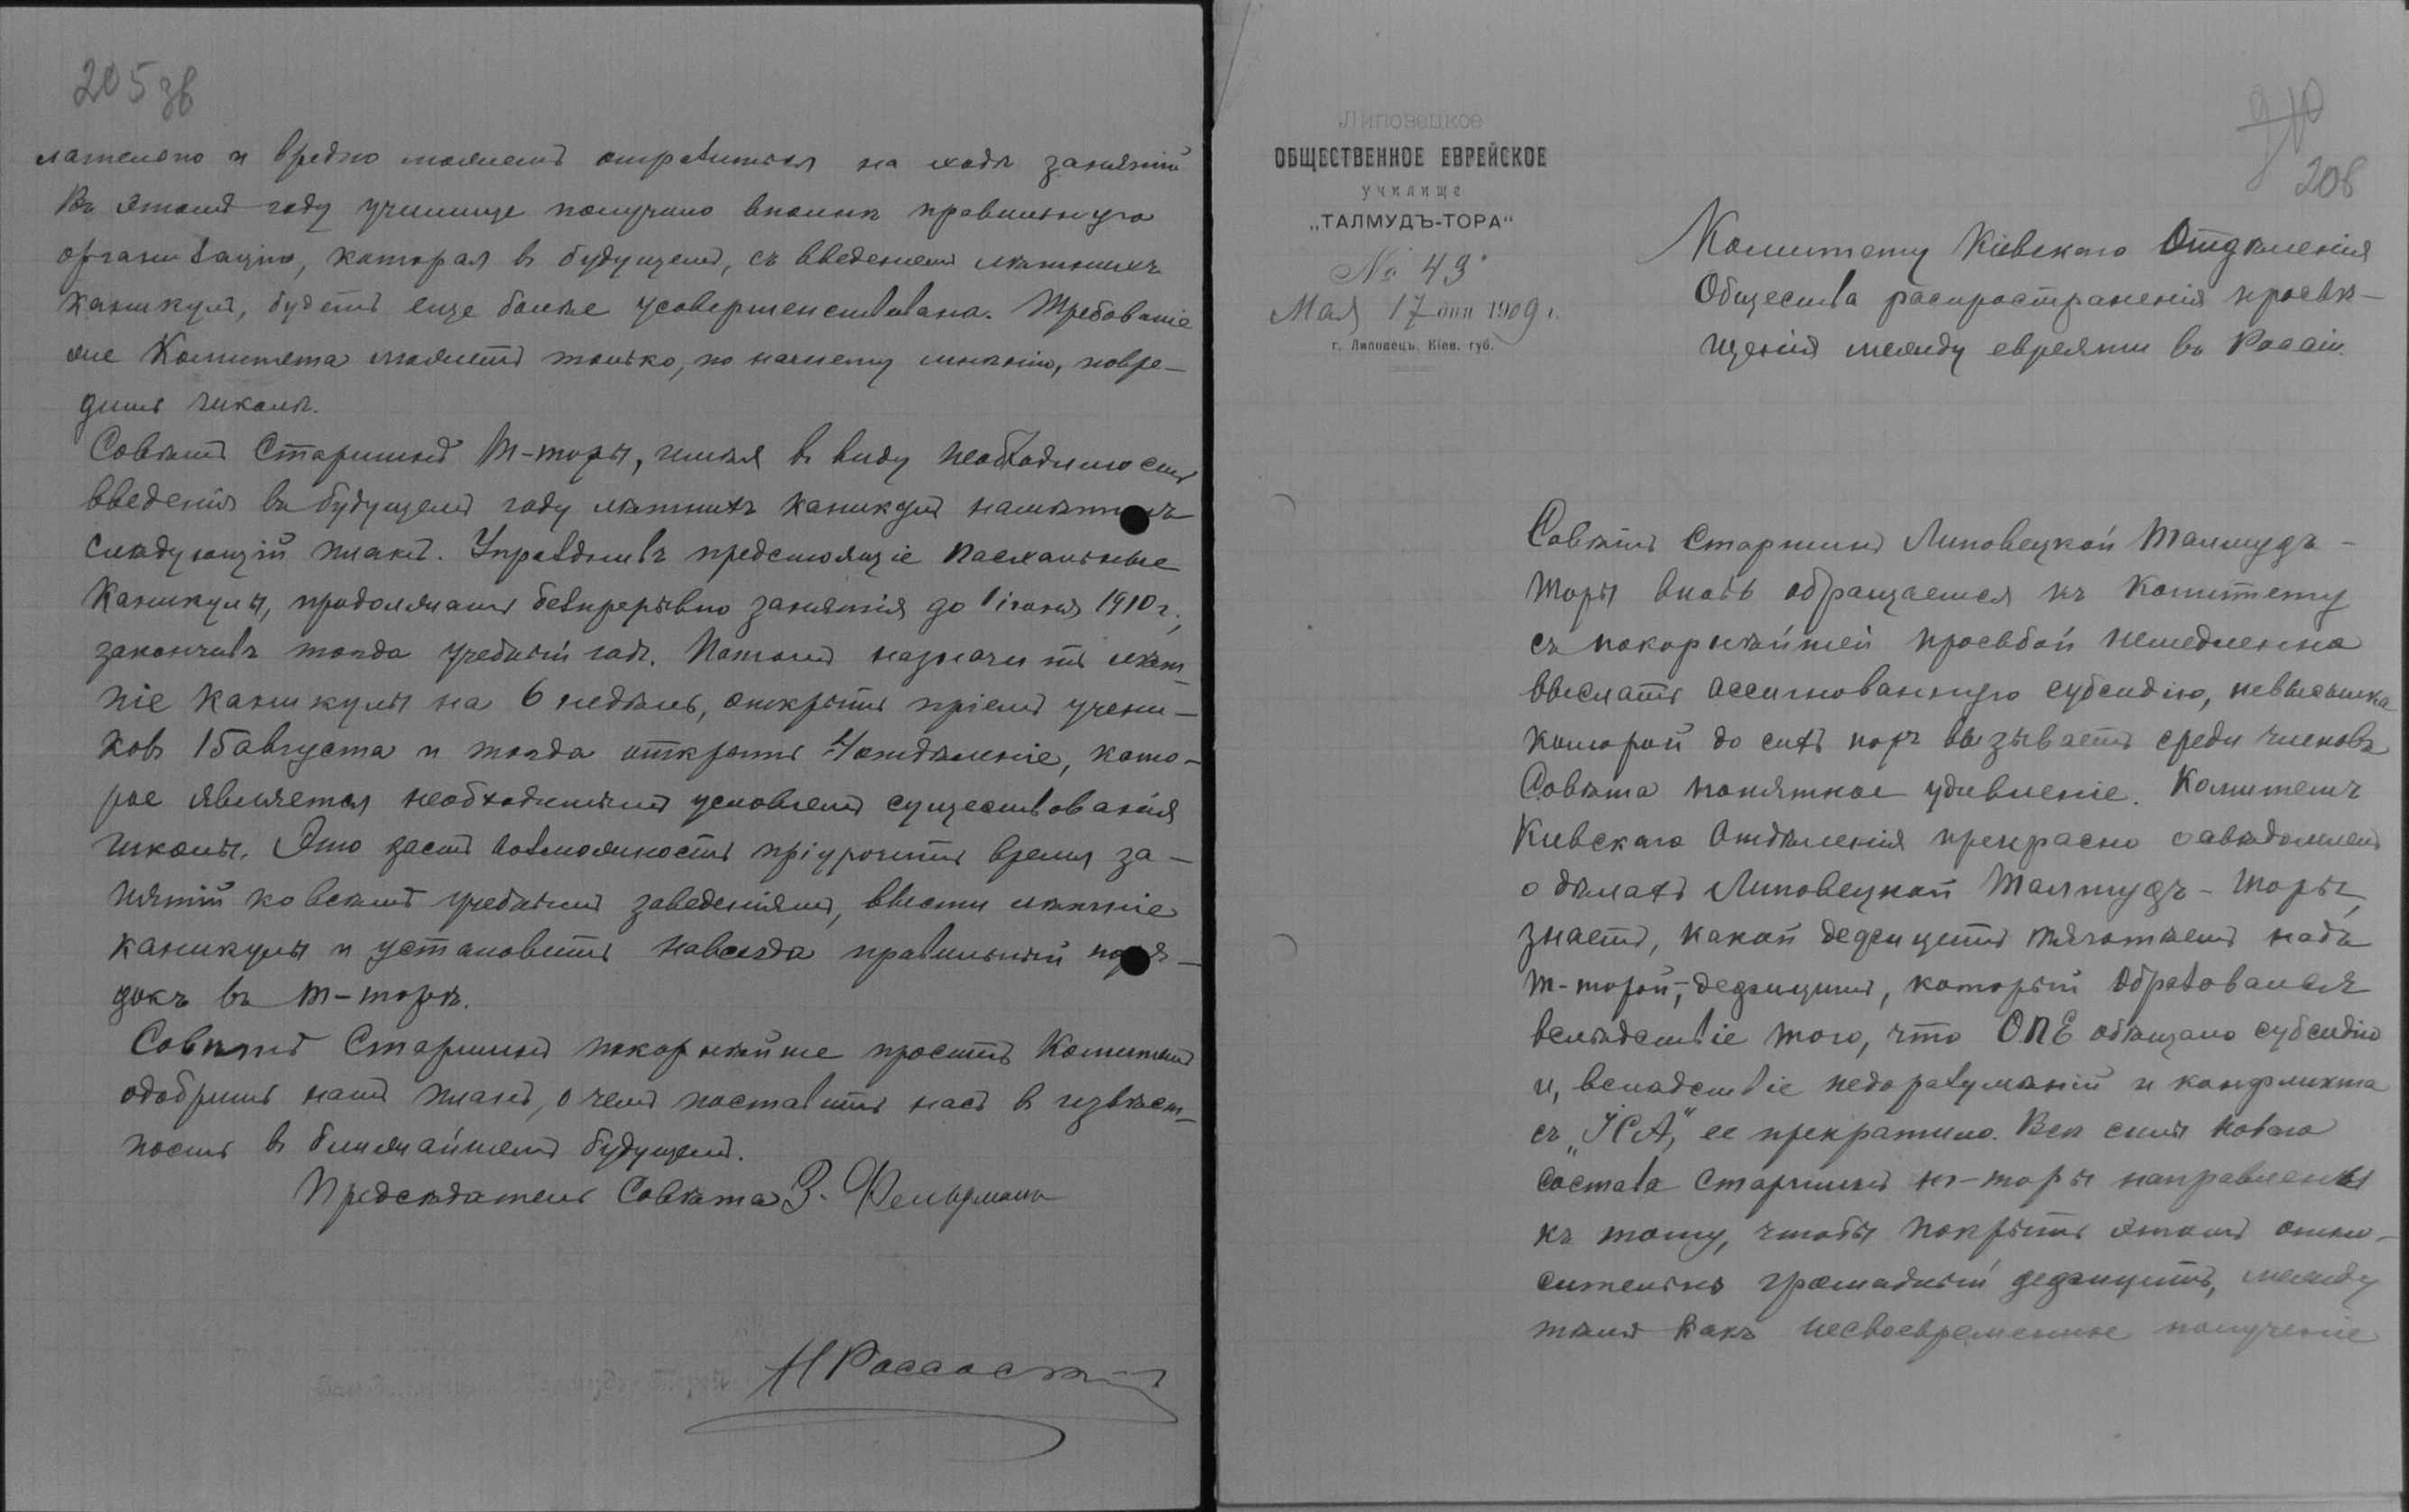 205 зв
лательно и вредно можетъ отразиться на ходѣ занятій
Въ этомъ году училище получило вполнѣ правильную
организацію, которая в будущемъ, съ введеніемъ лѣтнихъ
каникулъ, будетъ еще болѣе усовершенствована. Требованіе
же Комитета можетъ только, по нашему мнѣнію, повре-
дить школѣ.
Совѣтъ Старшинъ Т-торы, имѣя в виду необходимость
введенія въ будущемъ году лѣтнихъ каникулъ намѣтилъ
слѣдующій планъ. Упразднивъ предстоящіе пасхальные
каникулы, продолжать безпрерывно занятія до 1 іюня 1910 г.,
закончивъ тогда учебный годъ. Потомъ назначить лѣт-
ніе каникулы на 6 недѣль, открыть пріемъ учени-
ковъ 15 августа и тогда открыть 4 отдѣленіе, кото-
рое является необходимымъ условіемъ существованія
школы. Это дастъ возможность пріурочить время за-
нятій ко всѣмъ учебнымъ заведеніямъ, ввести лѣтніе
каникулы и установить навсегда правильный поря-
докъ въ Т-торѣ.
Совѣтъ Старшинъ покорнѣйше проситъ Комитетъ
одобрить нашъ планъ, о чемъ поставить насъ в извѣст-
ность в ближайшемъ будущемъ.
Предсѣдатель Совѣта З. Фельдманъ
Липовецкое
ОБЩЕСТВЕННОЕ ЕВРЕЙСКОЕ
училище
„ТАЛМУДЪ-ТОРА“
№ 49
Мая 17 дня 1909 г.
г. Липовецъ, Кіев. губ.
206
Комитету Кіевскаго Отдѣленія
Общества распространенія просвѣ-
щенія между евреями въ Россіи.
Совѣтъ Старшинъ Липовецкой Талмудъ-
Торы вновь обращается къ Комитету
съ покорнѣйшей просьбой немедленно
выслать ассигнованную субсидію, невысылка
которой до сихъ поръ вызываетъ среди членовъ
Совѣта понятное удивленіе. Комитетъ
Кіевскаго Отдѣленія прекрасно освѣдомленъ
о дѣлахъ Липовецкой Талмудъ-Торы,
знаетъ, какой дефицитъ тяготѣетъ надъ
Т-торой,- дефицитъ, который образовался
вслѣдствіе того, что ОПЕ обѣщало субсидію
и, вслѣдствіе недоразумѣній и конфликта
съ „ІСА“, ее прекратило. Всѣ силы новаго
состава Старшинъ Т-торы направлены
къ тому, чтобы покрыть этотъ отно-
сительно громадный дефицитъ, между
тѣмъ какъ несвоевременное полученіе